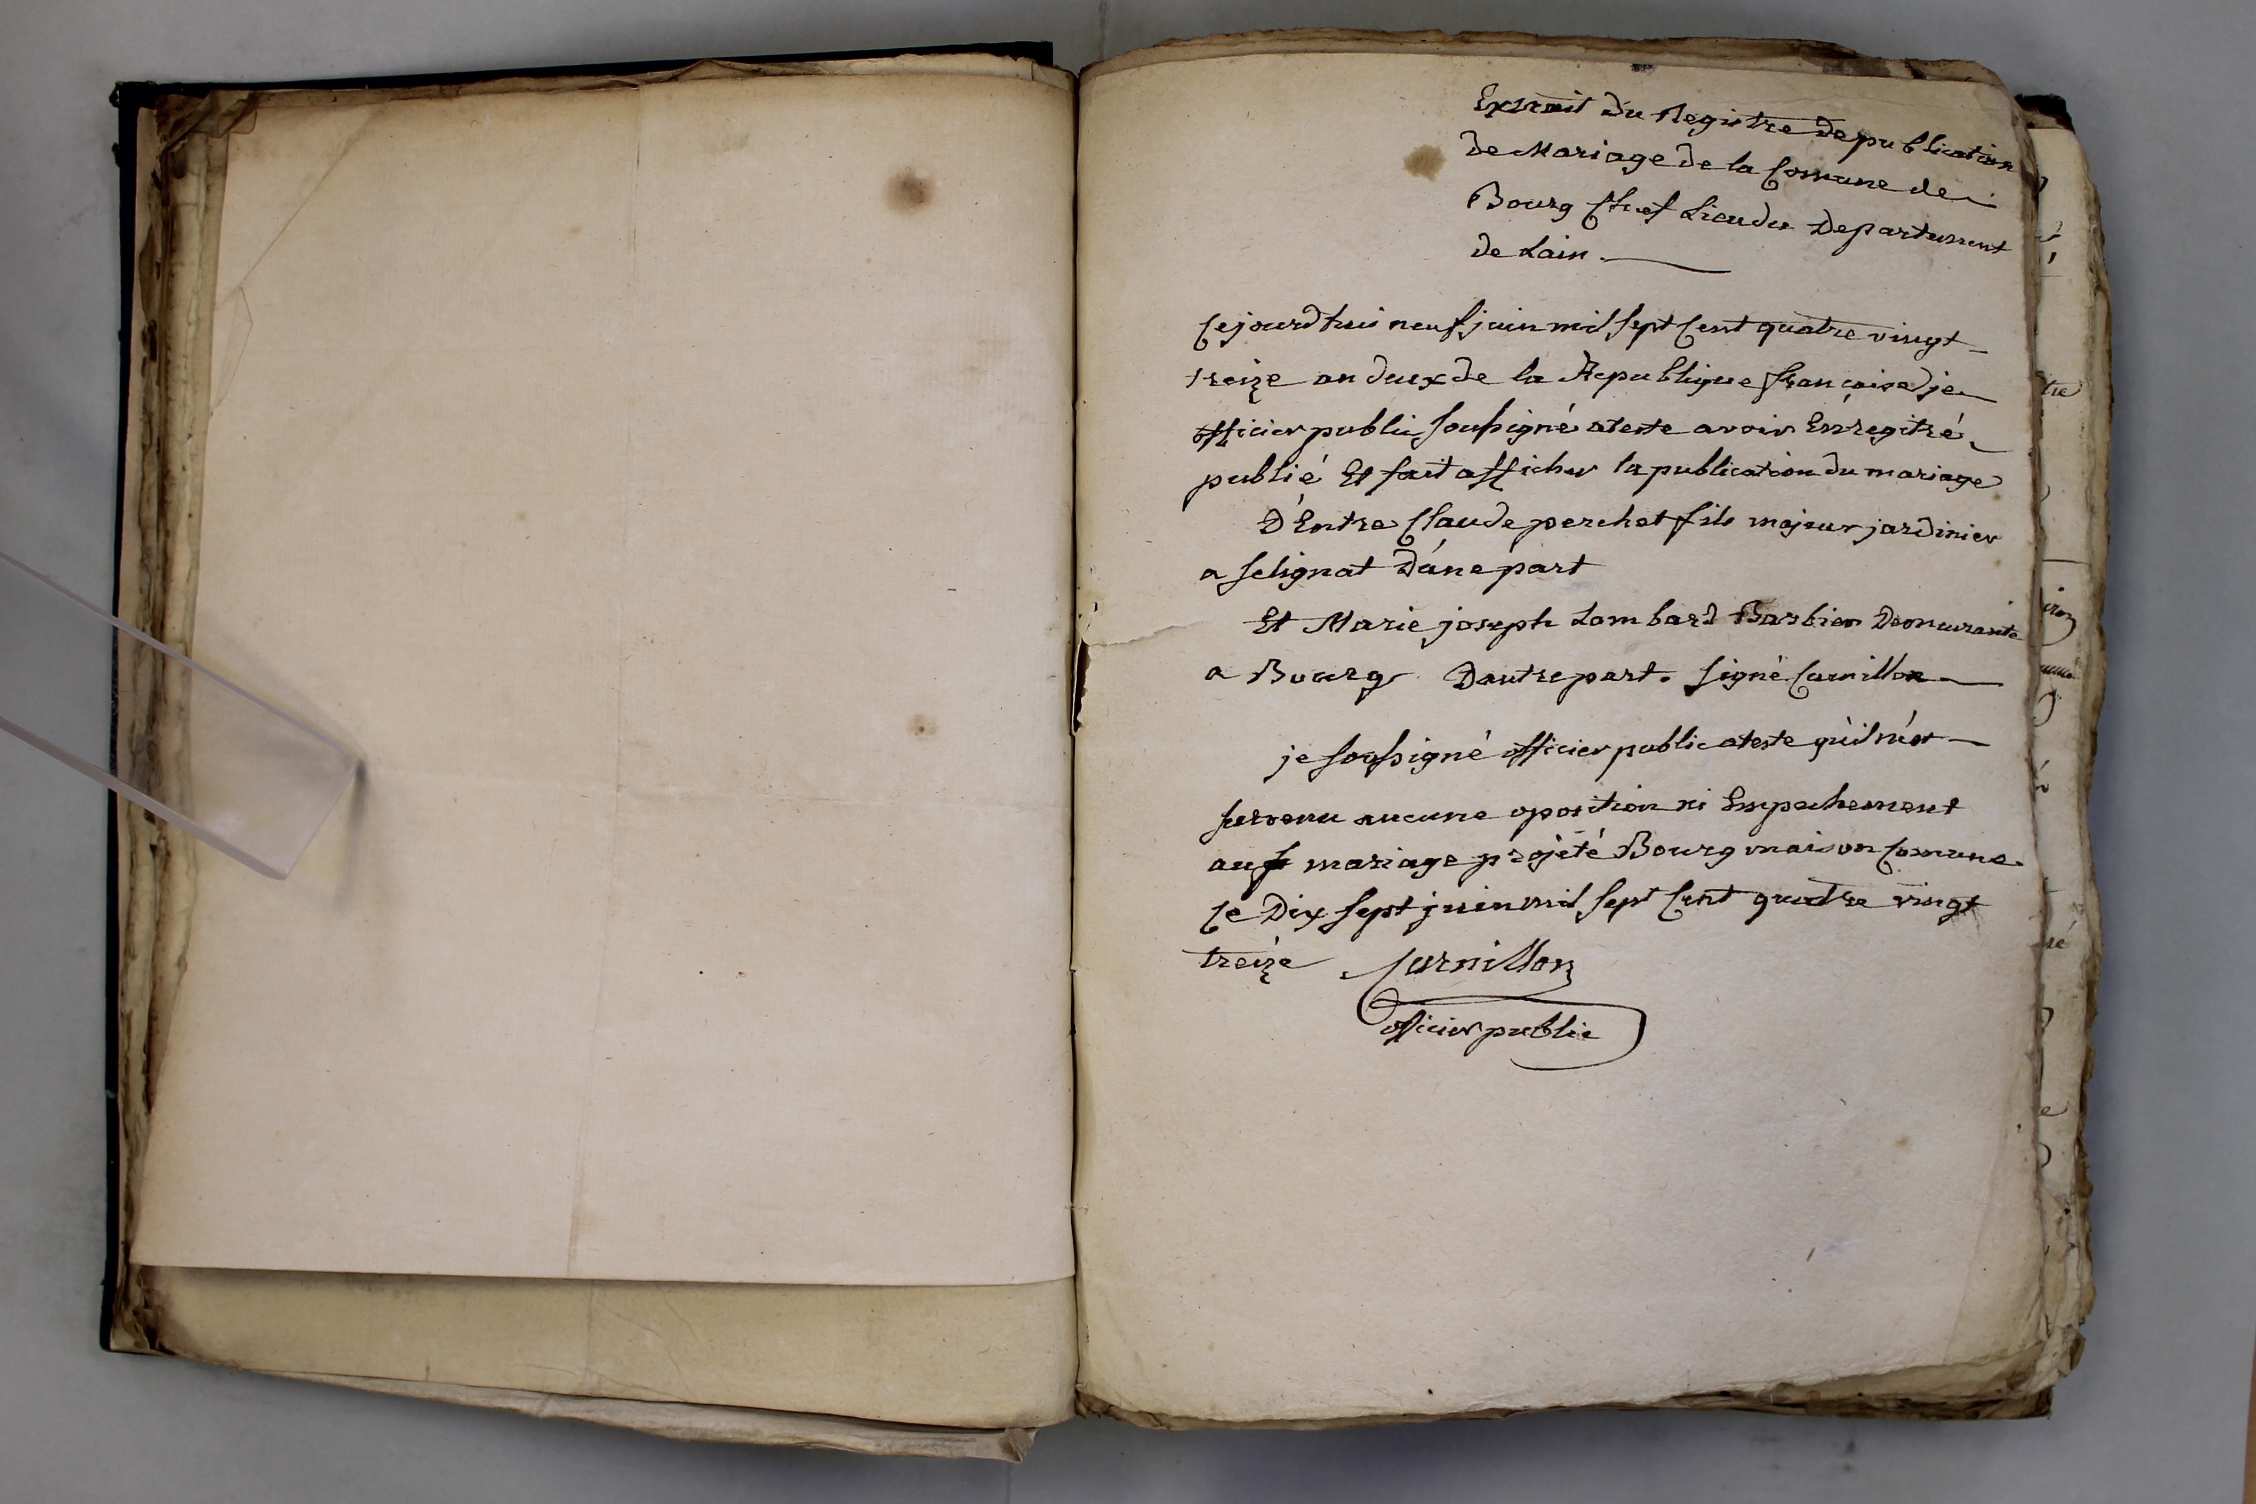 Extrait du Registre de publication
de Mariage de la Comune de
Bourg Chef Lieu du Departement
de Lain.
Cejourdhui neuf juin mil sept Cent quatre vingt
treize an deux de la Republique françoise je
officier public soussigné ateste avoir Enregitré
publié Et fait afficher la publication du mariage
D'Entre Claude perchet fils majeur jardinier
a selignat D'une part
Et Marie joseph Lombard Barbier Demeurante
a Bourg Dautre part. signé Curnillon
je soussigné officier public ateste qu'il n'est
survenu aucune oposition ni Empechement
au mariage projeté Bourg maison Comune
Ce Dix sept juin mil sept Cent quatre vingt
treize Curnillon
officier public